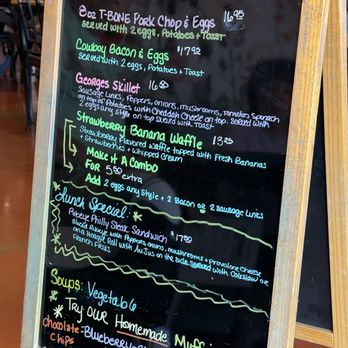 8oz T-BONE PORK Chop & Eggs 16.95
Served with 2 eggs, Potatoes + Toast
Cowboy Bacon & Eggs $17.92
Served with 2 eggs, Potatoes + Toast
Georges Skillet 16.50
Sausage Links, Peppers, onions, mushrooms, tomatoes, Spinach
on top of Potatoes with Cheddar Cheese on top. Served with
2 eggs any style on top served with Toast
Strawberry Banana Waffle 13.25
Strawberry Flavored waffle topped with Fresh Bananas
+ Strawberries + Whipped Cream
Make It A Combo
For 5.00 extra
Add 2 eggs any style + 2 Bacon or 2 Sausage Links
Lunch Special:
Ribeye Philly Steak Sandwich $17.50
Sliced Ribeye with Peppers, onions, mushrooms + provolone Cheese
on a Hoagie Roll with Au Jus on the side served with Coleslaw or
French Fries
Soups: Vegetable
Try our Homemade Muff
Chocolate Chips
Blueberry